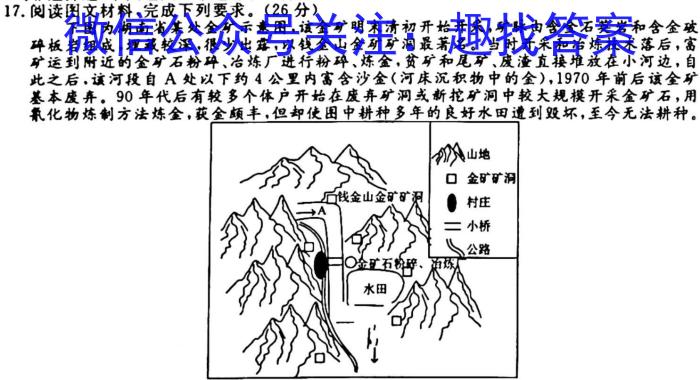 17.阅读图文材料,完成下列要求。(26分)
微信公众号关注：趣找答案
碎板岩组成,埋藏较深,很少出露,以钱金山金矿矿洞最著名。当时开采和冶炼技术落后,富
矿运到附近的金矿石粉碎、冶炼厂进行粉碎、炼金,贫矿和尾矿、废渣直接堆放在小河边,自
此之后,该河段自A处以下约4公里内富含沙金(河床沉积物中的金),1970年前后该金矿
基本废弃。90年代后有较多个体户开始在废弃矿洞或新挖矿洞中较大规模开采金矿石,用
氰化物炼制方法炼金,获金颇丰,但却使图中耕种多年的良好水田遭到毁坏,至今无法耕种。
山地
钱金山金矿矿洞
金矿矿洞
A
村庄
小桥
公路
金矿石粉碎、冶炼
水田